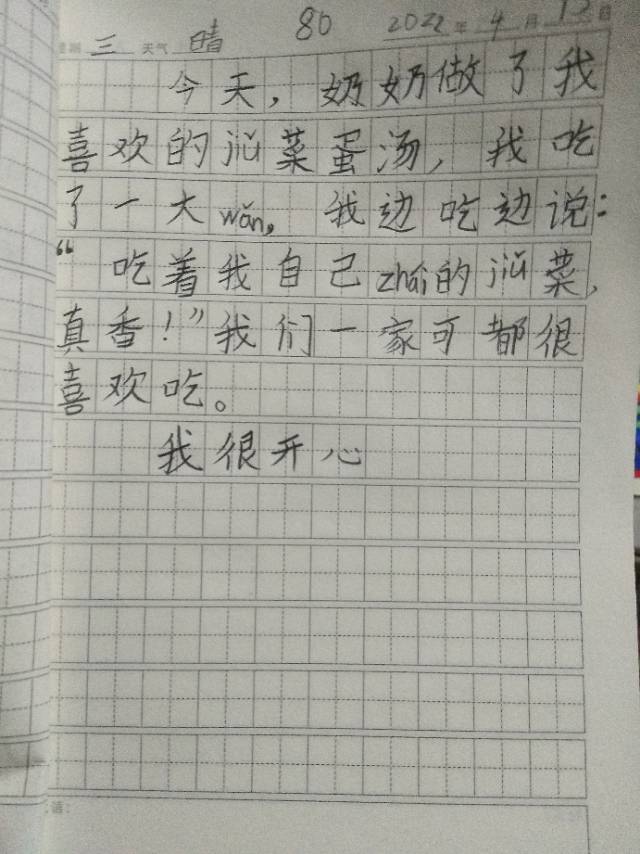 三 天气 晴 80 2022 年 4 月
今天，奶奶做了我
喜欢的jiǔ菜蛋汤，我吃
了一大wǎn，我边吃边说：
“吃着我自己zhāi的jiǔ菜，
真香！”我们一家可都很
喜欢吃。
我很开心